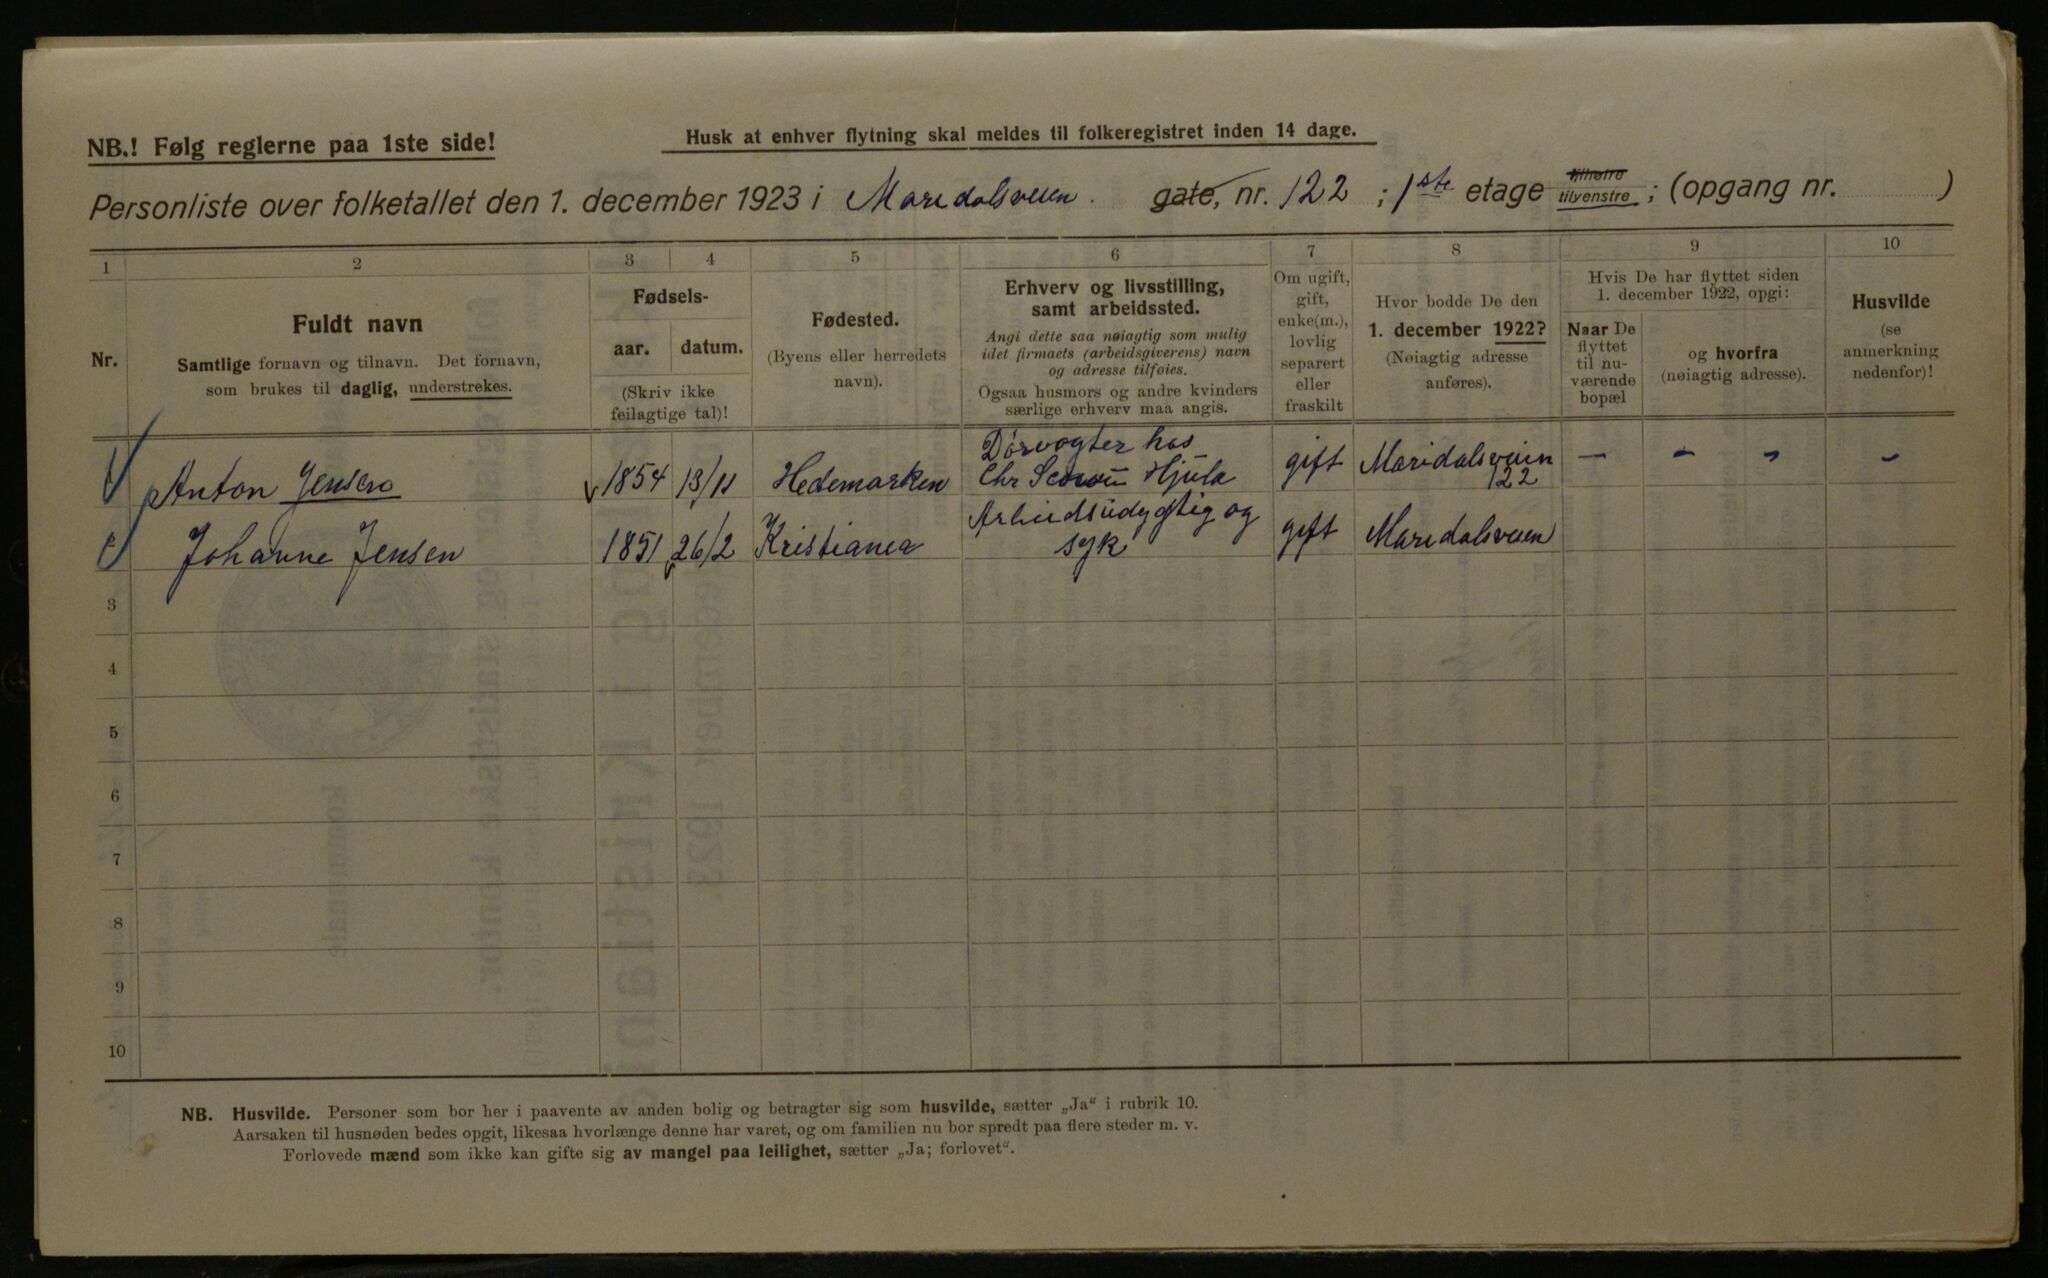 NB.! Følg reglerne paa 1ste side!
Husk at enhver flytning skal meldes til folkeregistret inden 14 dage.
Personliste over folketallet den 1. december 1923 i Maridalsveien gate, nr. 122 ; 1ste etage tilhøire tilvenstre ; (opgang nr. )
1 2 3 4 5 6 7 8 9 10
Nr.
Fuldt navn
Samtlige fornavn og tilnavn. Det fornavn,
som brukes til daglig, understrekes.
Fødsels-
aar. datum.
(Skriv ikke
feilagtige tal)!
Fødested.
(Byens eller herredets
navn).
Erhverv og livsstilling,
samt arbeidssted.
Angi dette saa nøiagtig som mulig
idet firmaets (arbeidsgiverens) navn
og adresse tilføies.
Ogsaa husmors og andre kvinders
særlige erhverv maa angis.
Om ugift,
gift,
enke(m.),
lovlig
separert
eller
fraskilt
Hvor bodde De den
1. december 1922?
(Nøiagtig adresse
anføres).
Hvis De har flyttet siden
1. december 1922, opgi:
Naar De
flyttet
til nu-
værende
bopæl
og hvorfra
(nøiagtig adresse).
Husvilde
(se
anmerkning
nedenfor)!
Dørvogter hos
Anton Jensen 1854 13/11 Hedemarken Chr Hjula gift Maridalsveien - - " -
122
Arbeidsudygtig og
Johanne Jensen 1851 26/2 Kristiania syk gift Maridalsveien
3
4
5
6
7
8
9
10
NB. Husvilde. Personer som bor her i paavente av anden bolig og betragter sig som husvilde, sætter „Ja“ i rubrik 10.
Aarsaken til husnøden bedes opgit, likesaa hvorlænge denne har varet, og om familien nu bor spredt paa flere steder m. v.
Forlovede mænd som ikke kan gifte sig av mangel paa leilighet, sætter „Ja; forlovet“.